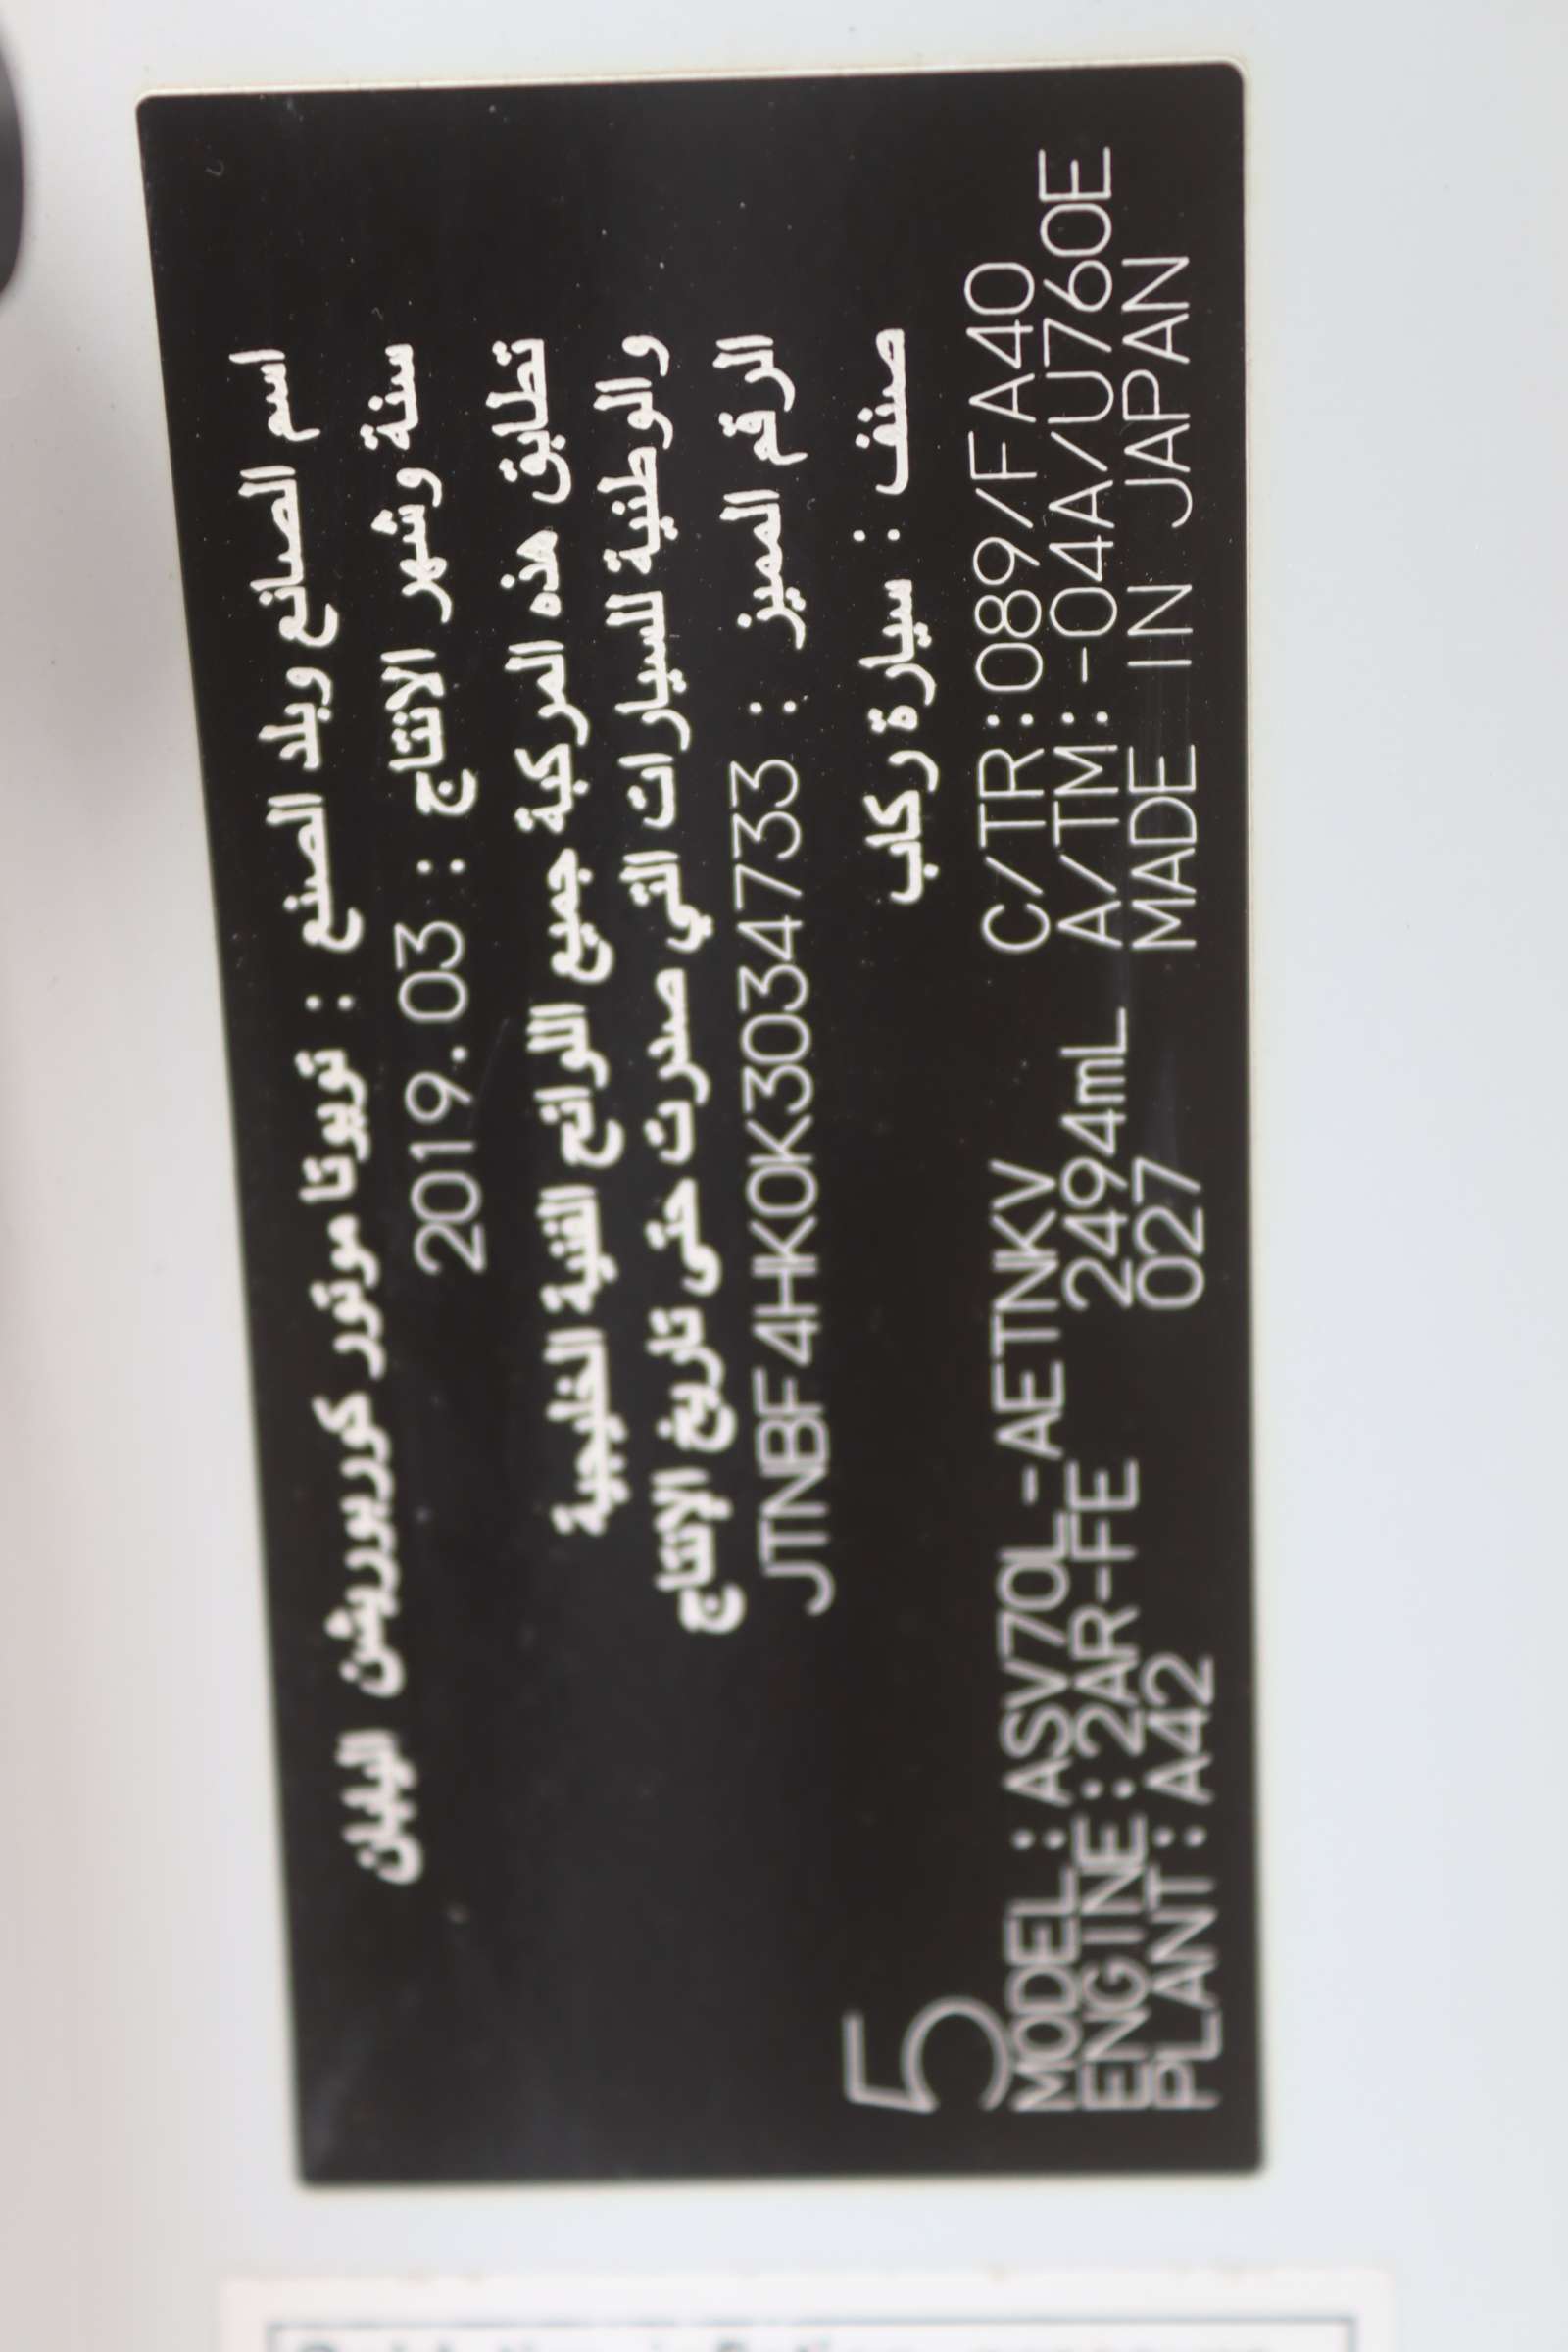 اسم الصانع وبلد الصنع : تويوتا موتور كوربوريشن اليابان
سنة وشهر الانتاج : 2019.03
تطابق هذه المركبة جميع اللوائح الفنية الخليجية
والوطنية للسيارات التي صدرت حتى تاريخ الإنتاج
الرقم المميز : JTNBF4HK0K3034733
صنف : سيارة ركاب
5
MODEL : ASV70L-AETNKV C/TR:089/FA40
ENGINE:2AR-FE 2494mL A/TM:-04A/U760E
PLANT:A42 027 MADE IN JAPAN